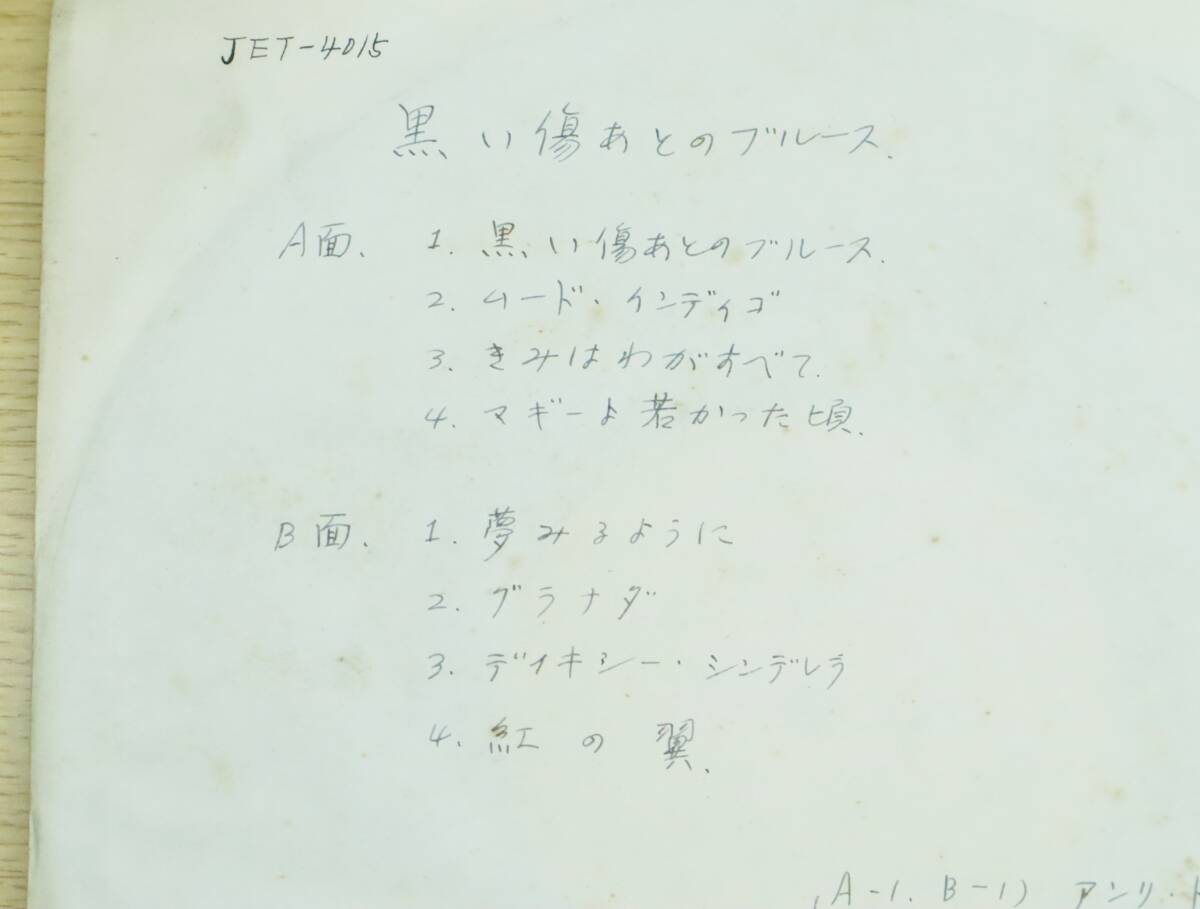 JET-4015
黒い傷あとのブルース.
A面. 1. 黒い傷あとのブルース.
2. ムード・インディゴ
3. きみはわがすべて.
4. マギーよ若かった頃.
B面. 1. 夢みるように
2. グラナダ
3. デイキシー・シンデレラ
4. 紅の翼.
(A-1. B-1) アンリ・ド